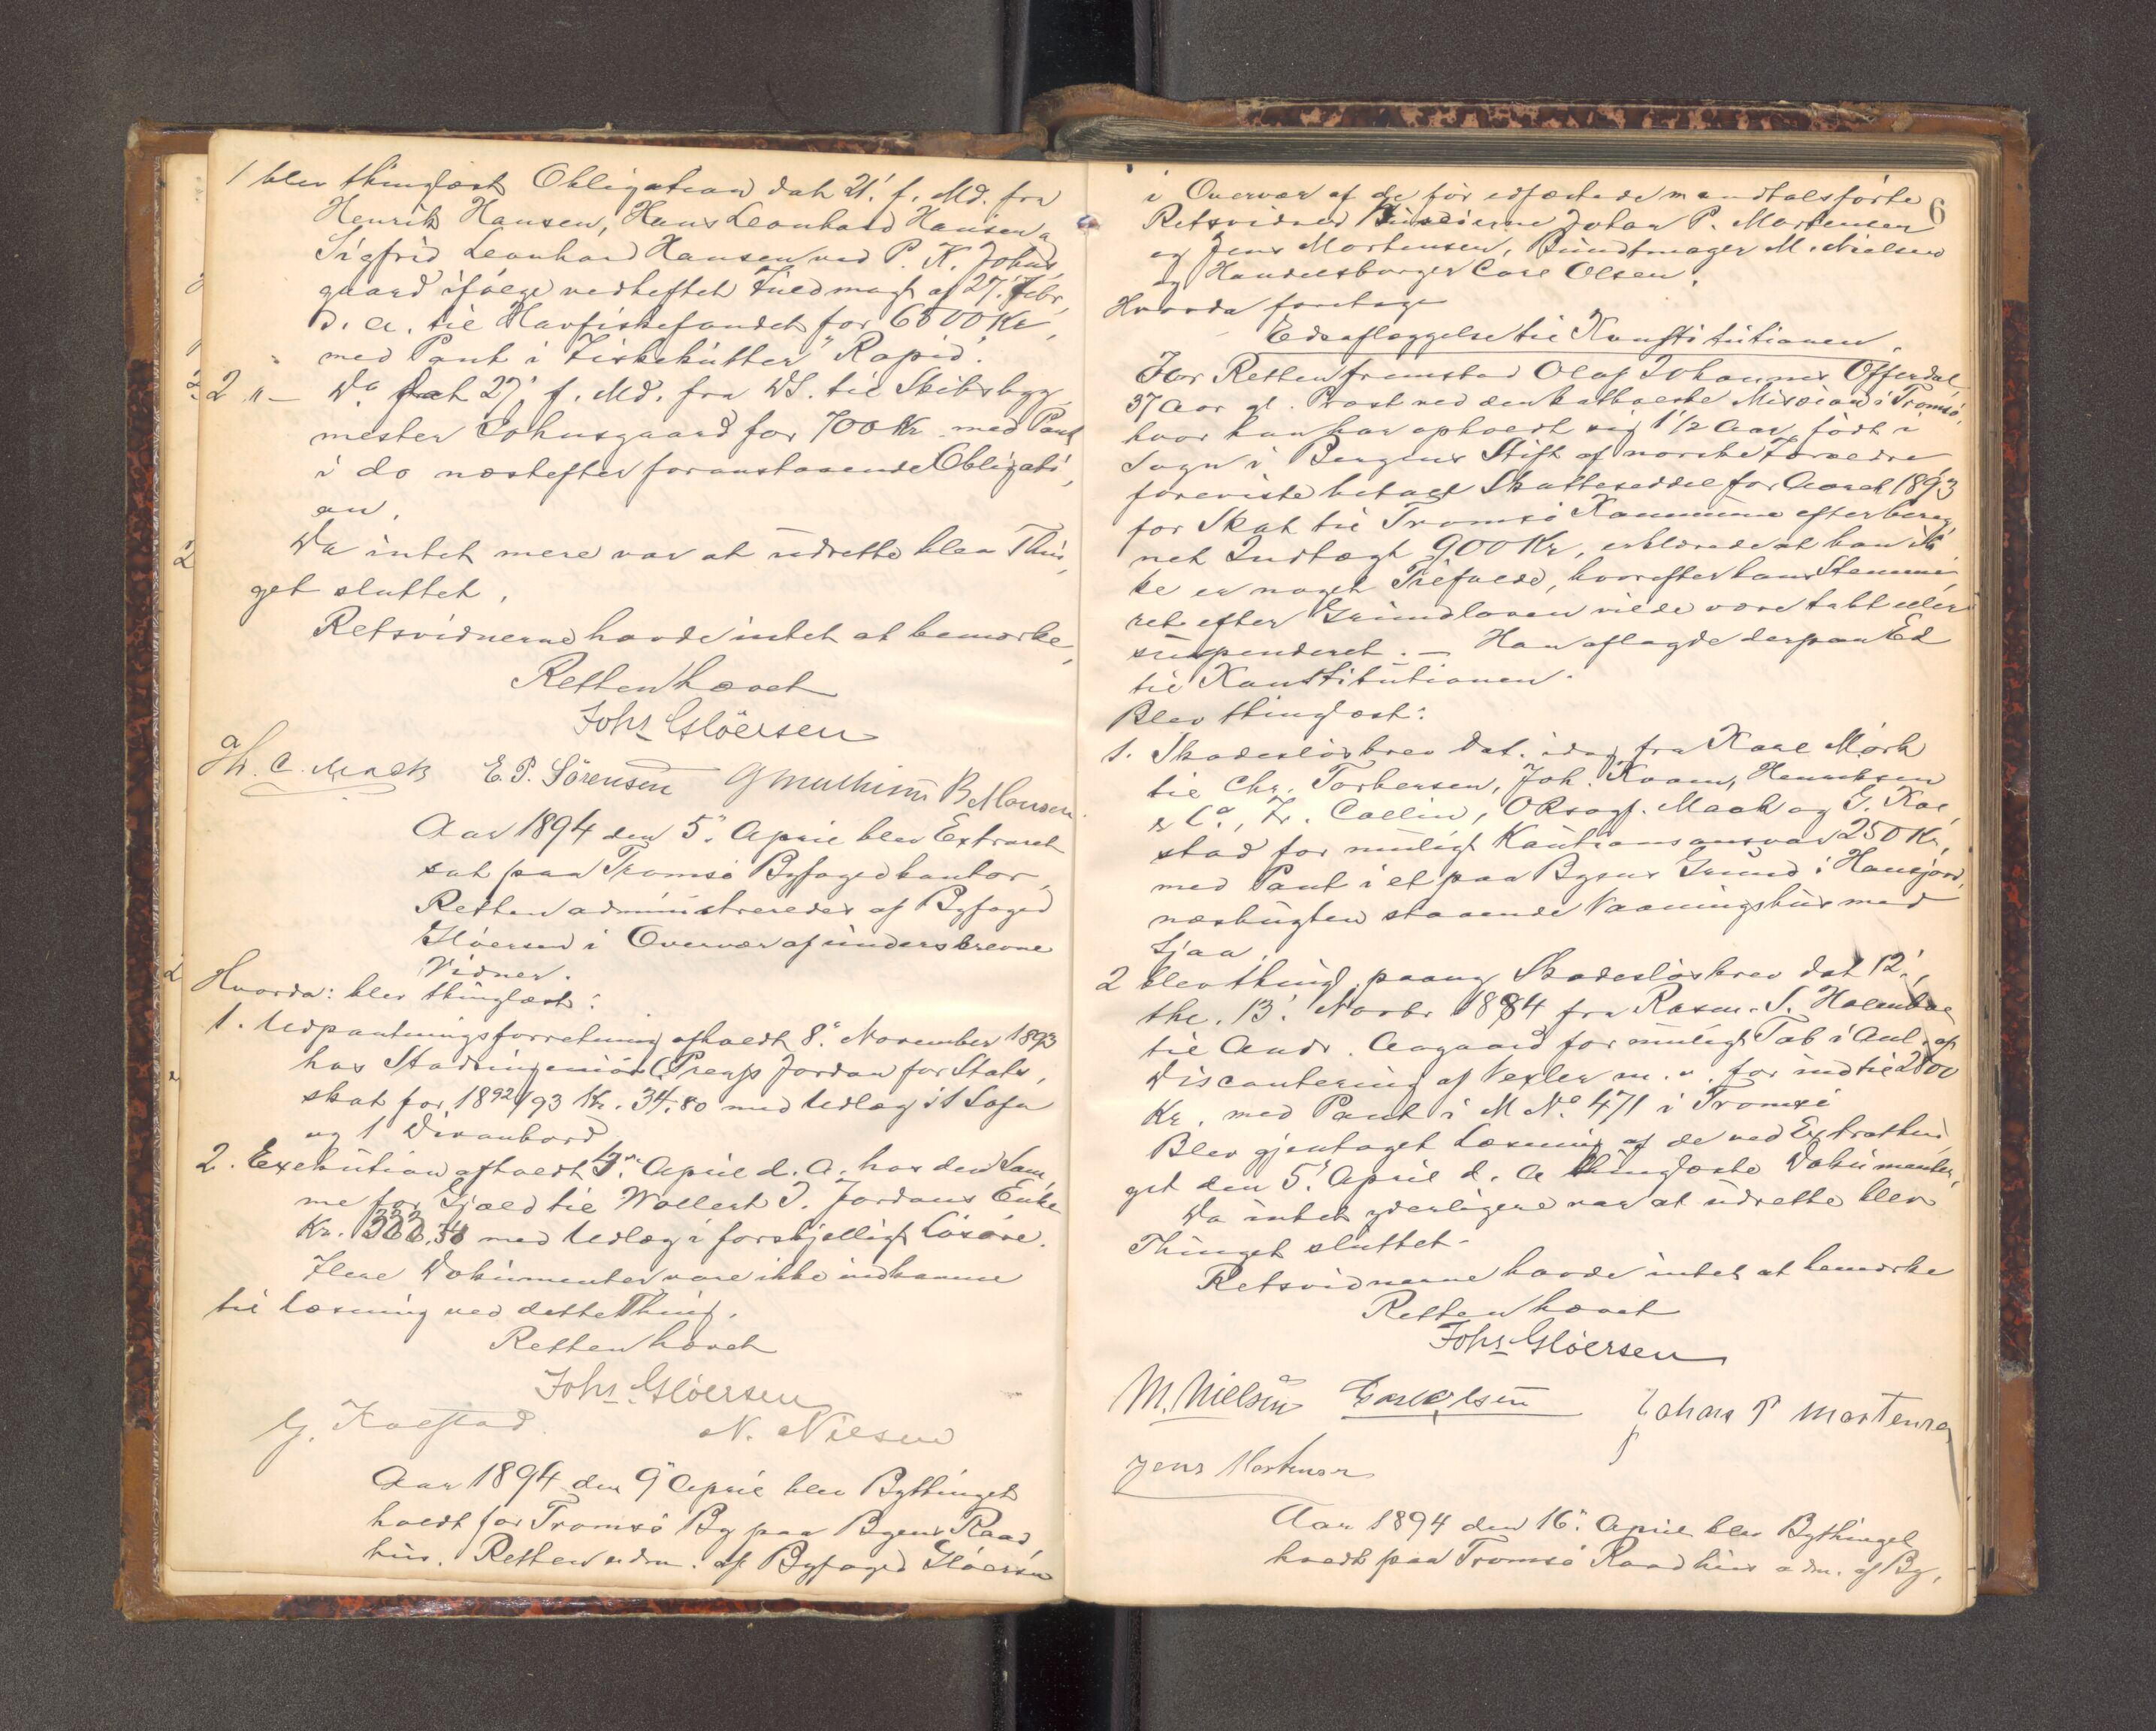 1 blev thinglæst Obligation dat 21' f. Md. fra
Henrik Hansen, Hans Leonhard Hansen &
Sigfrid Leonhard Hansen ved P. K. Johns,
gaard ifølge vedheftet Fuldmagt af 27. Febr,
d. A. til Havfiskefondet for 6500 Kr,
med Pant i Fiskekutter "Rapid".
2 "- Do dat 27' f. Md. fra DS. til Skibsbyg,
mester Johnsgaard for 700 Kr. med Pant
i do næstefter foranstaaende Obligati,
on.
Da intet mere var at udrette blev Thin,
get sluttet.
Retsvidnerne havde intet at bemærke,
Retten hævet
Johs Gløersen
Th. C. Mack E. P. Sörensen G Mathisen B. Monsen
Aar 1894 den 5' April blev Extraret
sat paa Tromsø Byfogedkontor,
Retten administreredes af Byfoged
Gløersen i Overvær af underskrevne
Vidner.
Hvorda: blev thinglæst:
1. Udpantningsforretning afholdt 8' November 1893
hos Stadsingeniør C. Preus Jordan for Stats,
skat for 1892/93 Kr. 34.80 med Udlæg i 1 Sofa
og 1 Divanbord
2. Exekution afholdt 4' April d. A. hos den Sam,
me for Gjæld til Wollert D. Jordans Enke
Kr. 322.34 med Udlæg i forskjelligt Løsøre.
Flere Dokumenter vare ikke indkomne
til Læsning ved dette Thing.
Retten hævet
Johs. Gløersen
G. Kolstad N. Nilsen
Aar 1894 den 9' April blev Bythinget
holdt for Tromsø By paa Byens Raad,
hus. Retten adm. af Byfoged Gløersen
6
i Overvær af de før edfæstede mandtalsførte
Retsvidner Huseierne Johan P. Mortensen
og Jens Mortensen, Bundtmager M. Nielsen
og Handelsborger Carl Olsen.
Hvorda foretoges
Edsaflæggelse til Konstitutionen.
For Retten fremstod Olaf Johannes Offerdal
37 Aar gl. Prest ved den katholske Mission i Tromsø,
hvor han har opholdt sig 1 1/2 Aar, født i
Sogn i Bergens Stift af norske Forældre
foreviste betalt Skatteseddel for Aaret 1893
for Skat til Tromsø Kommune efter bereg,
net Indtægt 900 Kr, erklærede at han ik,
ke er noget Tilfælde, hvorefter hans Stemme,
ret efter Grundloven vilde være tabt eller
suspenderet. - Han aflagde derpaa Ed
til Konstitutionen.
Blev thinglæst:
1. Skadesløsbrev dat. idag fra Karl Mørk
til Chr. Torbersen, Joh. Kvam, Henriksen
& Co, Fr. Collin, ORsagf. Maak og G. Kol,
stad for muligt Kautionsansvar 250 Kr,
med Pant i et paa Byens Grund i Hansjord,
næsbugten staaende Vaaningshus med
Sjaa.
2 blev thingl. paany Skadesløsbrev dat 12',
thl. 13' Novbr 1884 fra Rasm. S. Holmboe
til Andr. Aagaard for muligt Tab i Anl. af
Discontering af Vexler m. v. for indtil 2800
Kr. med Pant i M No 471 i Tromsø
Blev gjentaget Læsning af de ved Extrathin,
get den 5' April d. A thinglæste Dokumenter,
Da intet yderligere var at udrette blev
Thinget sluttet.
Retsvidnerne havde intet at bemærke
Retten hævet
Johs Gløersen
M. Nielsen Carl Olsen Johan P Mortensen
Jens Mortensen
Aar 1894 den 16' April blev Bythinget
holdt paa Tromsø Raadhus adm. af By,